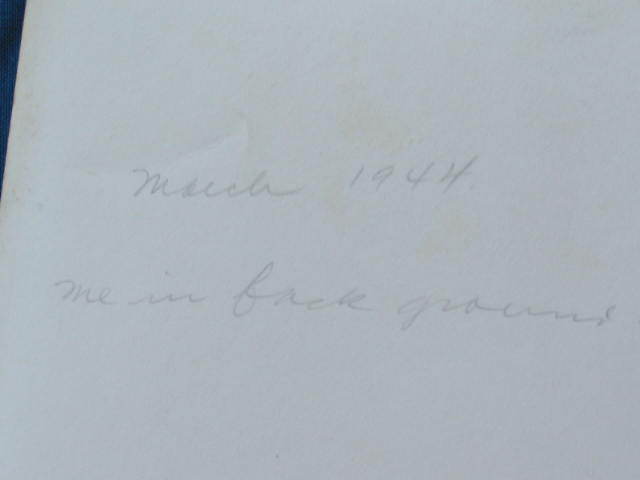 March 1944.
me in back ground